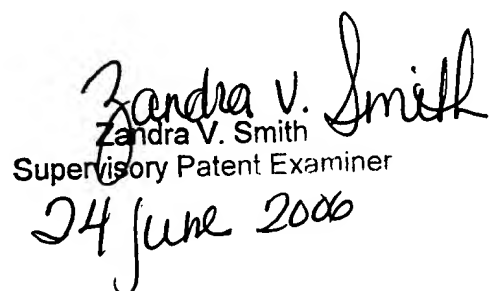 Zandra V. Smith
Zandra V. Smith
Supervisory Patent Examiner
24 June 2006